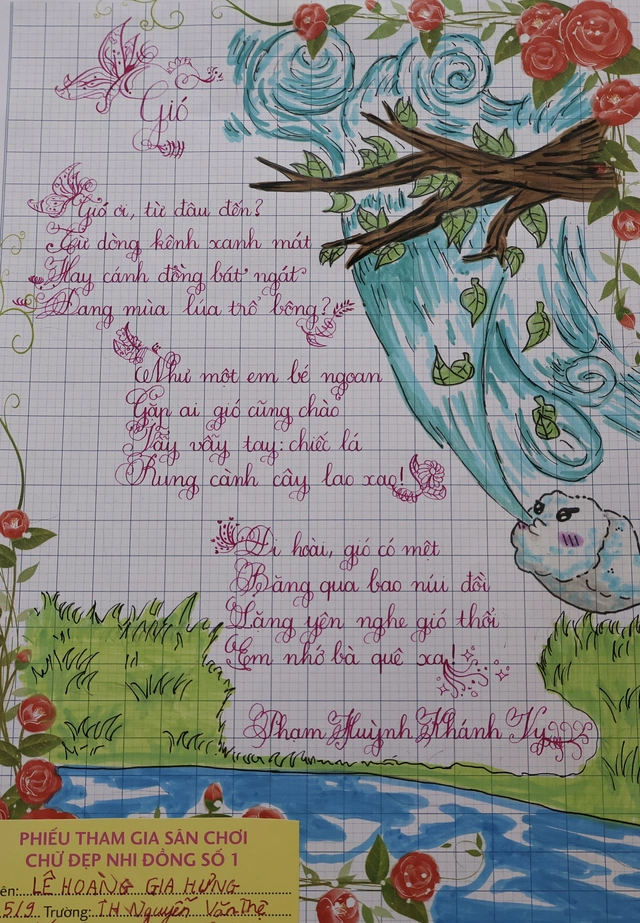 Gió
Gió ơi, từ đâu đến?
Từ dòng kênh xanh mát
Hay cánh đồng bát ngát
Đang mùa lúa trổ bông?
Như một em bé ngoan
Gặp ai gió cũng chào
Vẫy vẫy tay: chiếc lá
Rung cành cây lao xao!
Đi hoài, gió có mệt
Băng qua bao núi đồi
Lặng yên nghe gió thổi
Em nhớ bà quê xa!
Phạm Huỳnh Khánh Vy
PHIẾU THAM GIA SÂN CHƠI
CHỮ ĐẸP NHI ĐỒNG SỐ 1
ên: LÊ HOÀNG GIA HƯNG
5/9 Trường: TH Nguyễn Văn Thệ